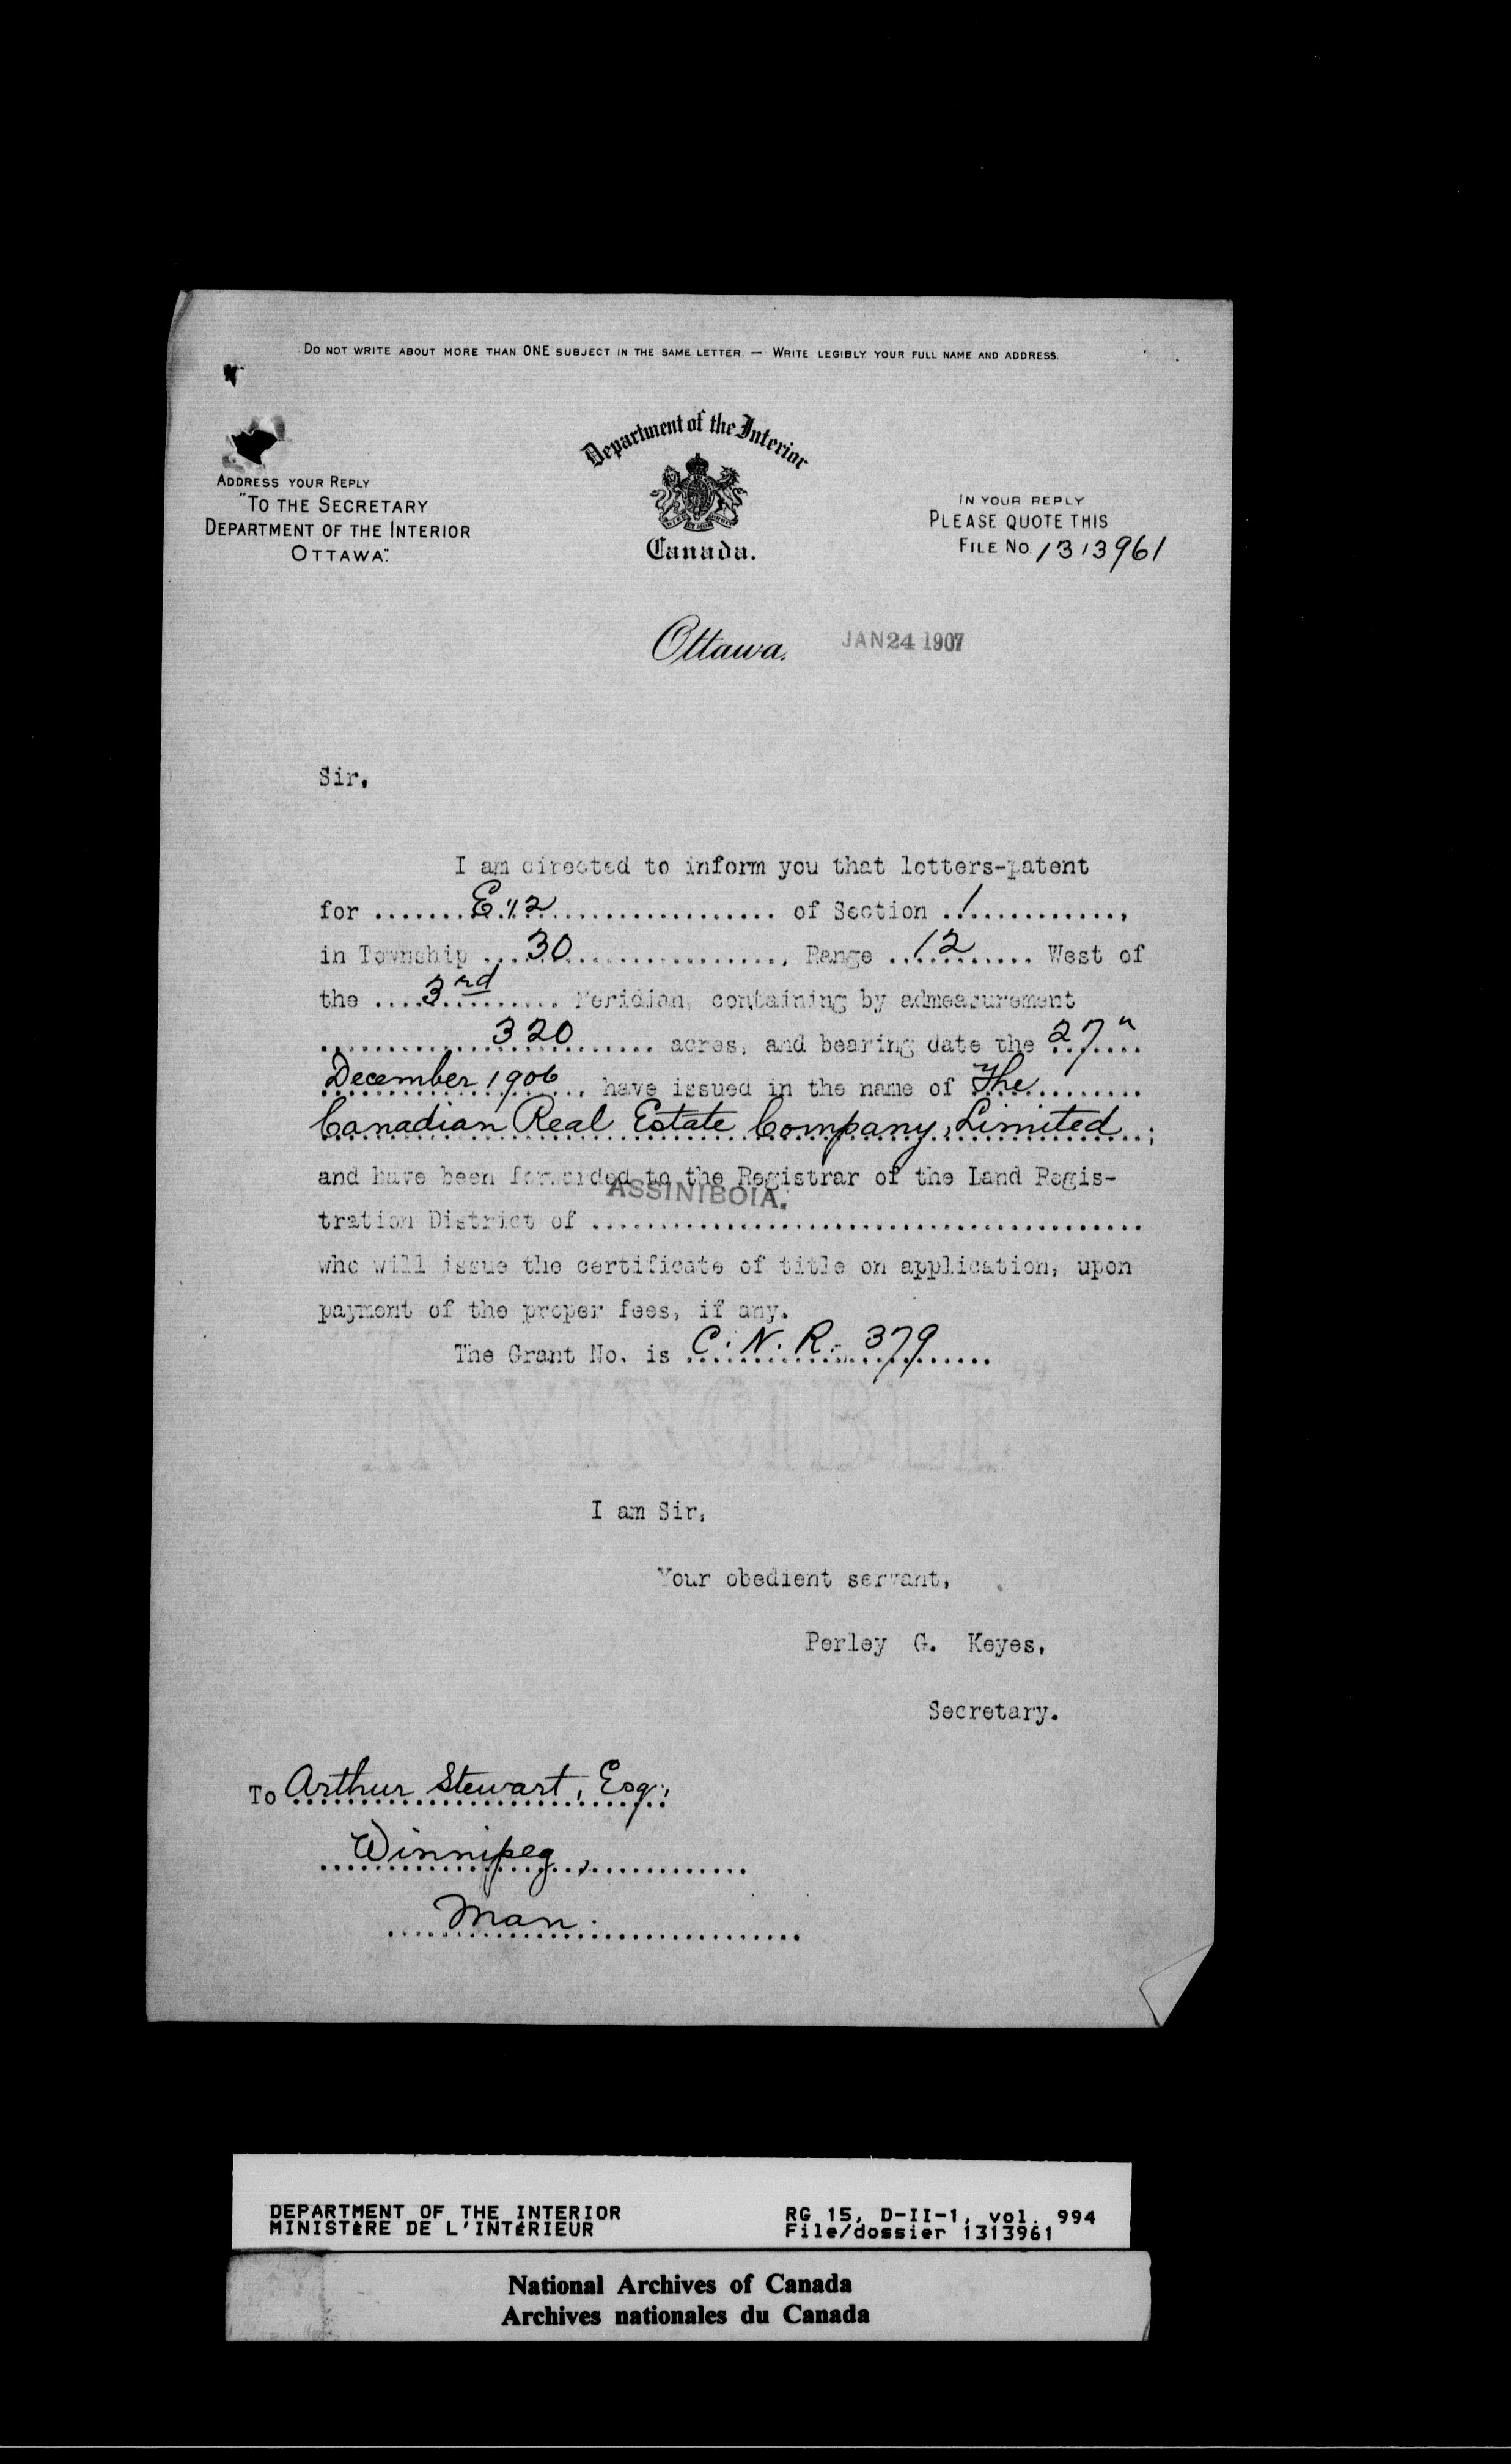 DO NOT WRITE ABOUT MORE THAN ONE SUBJECT IN THE SAME LETTER. — WRITE LEGIBLY YOUR FULL NAME AND ADDRESS.
Department of the Interior
Canada.
ADDRESS YOUR REPLY
"TO THE SECRETARY
DEPARTMENT OF THE INTERIOR
OTTAWA."
IN YOUR REPLY
PLEASE QUOTE THIS
FILE No. 1313961
Ottawa. JAN 24 1907
Sir,
I am directed to inform you that letters-patent
for ....... E 1/2 .................... of Section .1..............,
in Township ....30...................., Range ..12......... West of
the ....3rd......... Meridian, containing by admeasurement
.............320....... acres, and bearing date the 27"
December 1906 .. have issued in the name of The.........
Canadian Real Estate Company, Limited ..;
and have been forwarded to the Registrar of the Land Regis-
ASSINIBOIA.
tration District of ..........................................
who will issue the certificate of title on application, upon
payment of the proper fees, if any.
The Grant No. is C. N. R. 379 .....
INVINCIBLE
I am Sir,
Your obedient servant,
Perley G. Keyes,
Secretary.
To Arthur Stewart, Esq.,
Winnipeg,
Man.
DEPARTMENT OF THE INTERIOR
MINISTÈRE DE L'INTÉRIEUR
RG 15, D-II-1, vol. 994
File/dossier 1313961
National Archives of Canada
Archives nationales du Canada